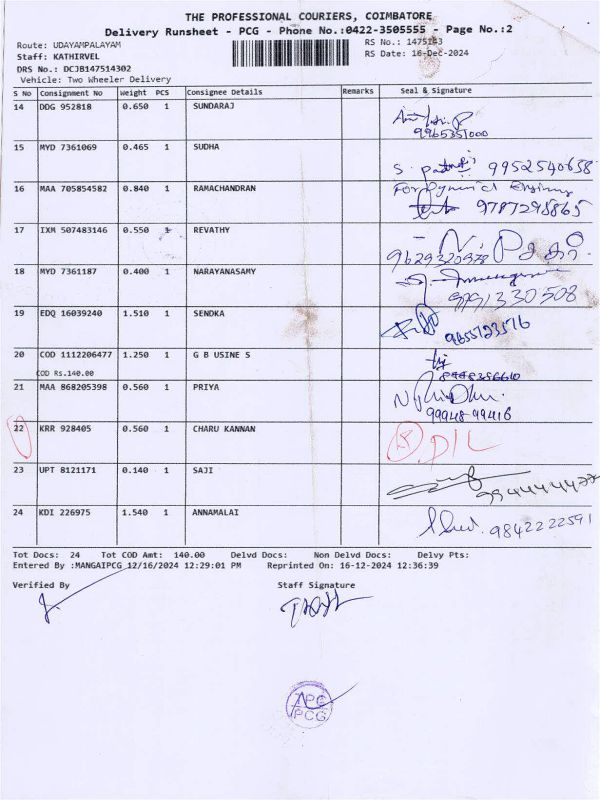 THE PROFESSIONAL COURIERS, COIMBATORE
Delivery Runsheet - PCG - Phone No.:0422-3505555 - Page No.:2
Route: UDAYAMPALAYAM RS No.: 1475143
Staff: KATHIRVEL RS Date: 16-Dec-2024
DRS No.: DCJB147514302
Vehicle: Two Wheeler Delivery
S No Consignment No Weight PCS Consignee Details Remarks Seal & Signature
14 DDG 952818 0.650 1 SUNDARAJ
9965351000
15 MYD 7361069 0.465 1 SUDHA
S. 9952540658
16 MAA 705854582 0.840 1 RAMACHANDRAN For Dynamical
9787298865
17 IXM 507483146 0.550 1 REVATHY
9629320978
18 MYD 7361187 0.400 1 NARAYANASAMY
9791330508
19 EDQ 16039240 1.510 1 SENDKA
9655723576
20 COD 1112206477 1.250 1 G B USINE S
COD Rs.140.00
21 MAA 868205398 0.560 1 PRIYA
99948-99416
22 KRR 928405 0.560 1 CHARU KANNAN D/L
23 UPT 8121171 0.140 1 SAJI
24 KDI 226975 1.540 1 ANNAMALAI 9842222591
Tot Docs: 24 Tot COD Amt: 140.00 Delvd Docs: Non Delvd Docs: Delvy Pts:
Entered By :MANGAIPCG 12/16/2024 12:29:01 PM Reprinted On: 16-12-2024 12:36:39
Verified By Staff Signature
PCG